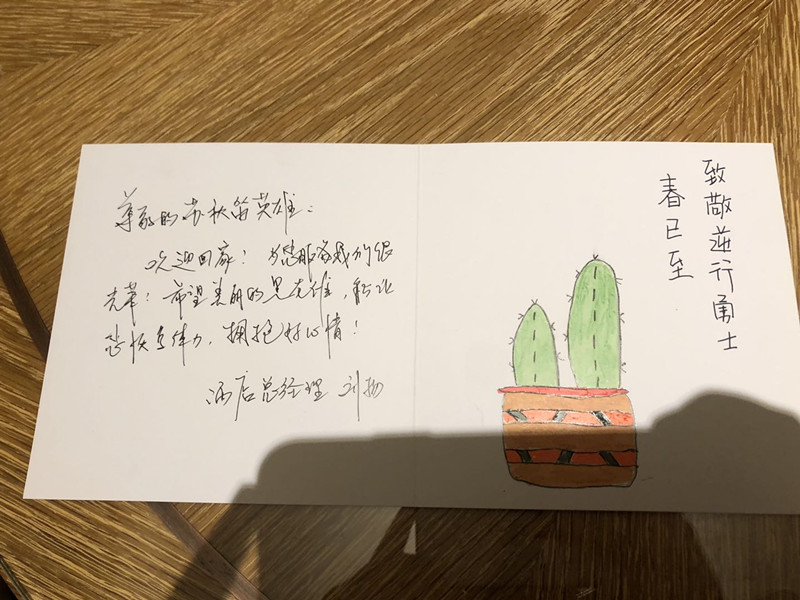 尊敬的苏秋笛英雄：
欢迎回家！为您服务我们很
光荣！希望美丽的黑龙江，能让
您恢复体力，拥抱好心情！
酒店总经理 刘扬
致敬逆行勇士
春已至